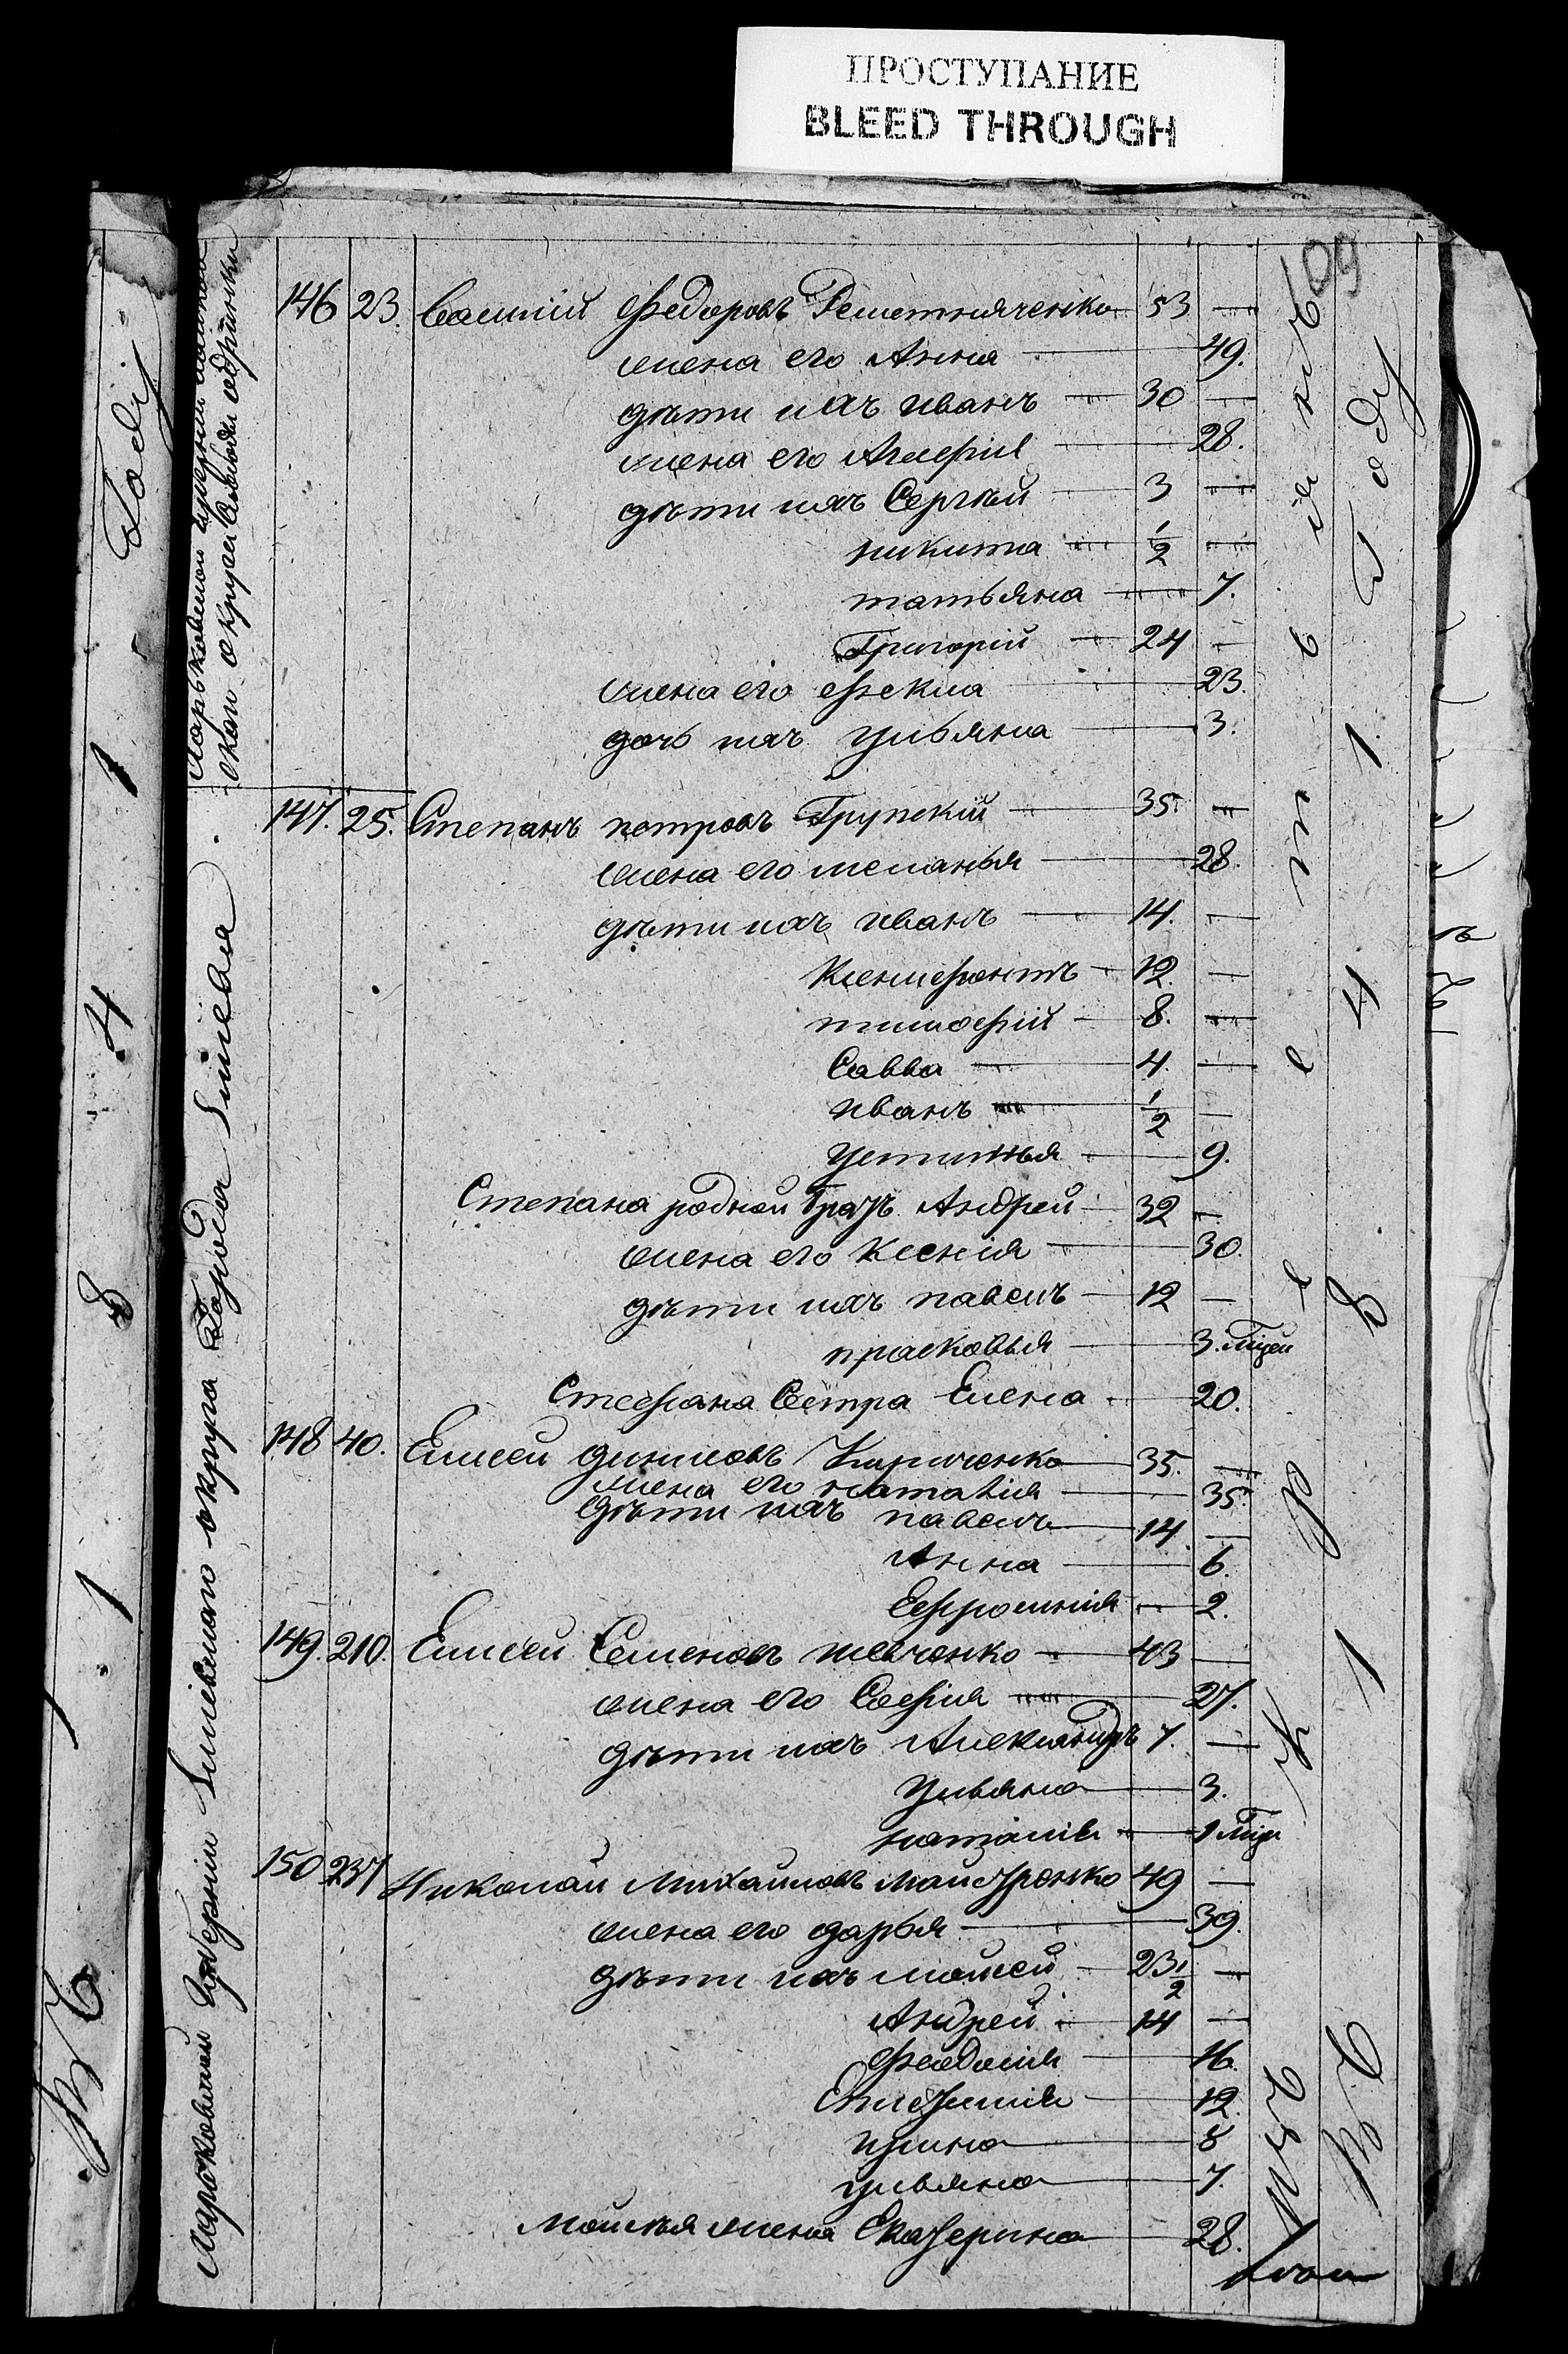 ПРОСТУПАНИЕ
BLEED THROUGH
109
146 23. Василий Федоровъ Решетняченко 53 —
жена его Анна — 49.
дѣти ихъ иванъ — 30 —
жена его Агафия — 28.
дѣти ихъ Сергѣй — 3 —
никита — 1/2 —
татьяна — 7.
Григорій — 24 —
жена его Фекла — 23.
дочь ихъ ульяна — 3.
147. 25. Степанъ петровъ Грунскій — 35. —
жена его меланья — 28.
дѣти ихъ иванъ — 14. —
Ксенофонтъ — 12. —
тимофей — 8. —
Савва — 4. —
иванъ — 1/2 —
устинья — 9.
Степана родной братъ Андрей — 32 —
жена его Ксенія — 30.
дѣти ихъ павелъ — 12 —
прасковья — 3.
Стефана Сестра Елена — 20.
148 40. Елисей Кириченко — 35. —
жена его наталія — 35.
дѣти ихъ павелъ — 14. —
Анна — 6.
Ефросинія — 2.
149. 210. Елисей Семеновъ шевченко — 43 —
жена его Софія — 27.
дѣти ихъ Александръ 7. —
ульяна — 3.
наталія — 1
150 237 Николай Михайловъ Майстренко 49 —
жена его дарья — 39.
дѣти ихъ мойсей — 23 1/2 —
Андрей — 14 —
Феодосія — 16.
12.
ирина — 8
ульяна — 7.
Мойсея жена Екатерина — 28.
Харьковской губерніи Зміевскаго округа Города Зміева
Харьковской губерніи
округа Слободы
изъ крестьянъ
въ 1814 Году